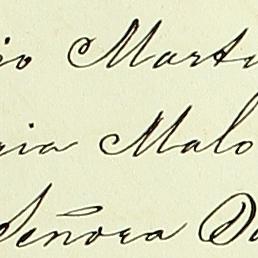 io Marti
ria Malo
Señora Do